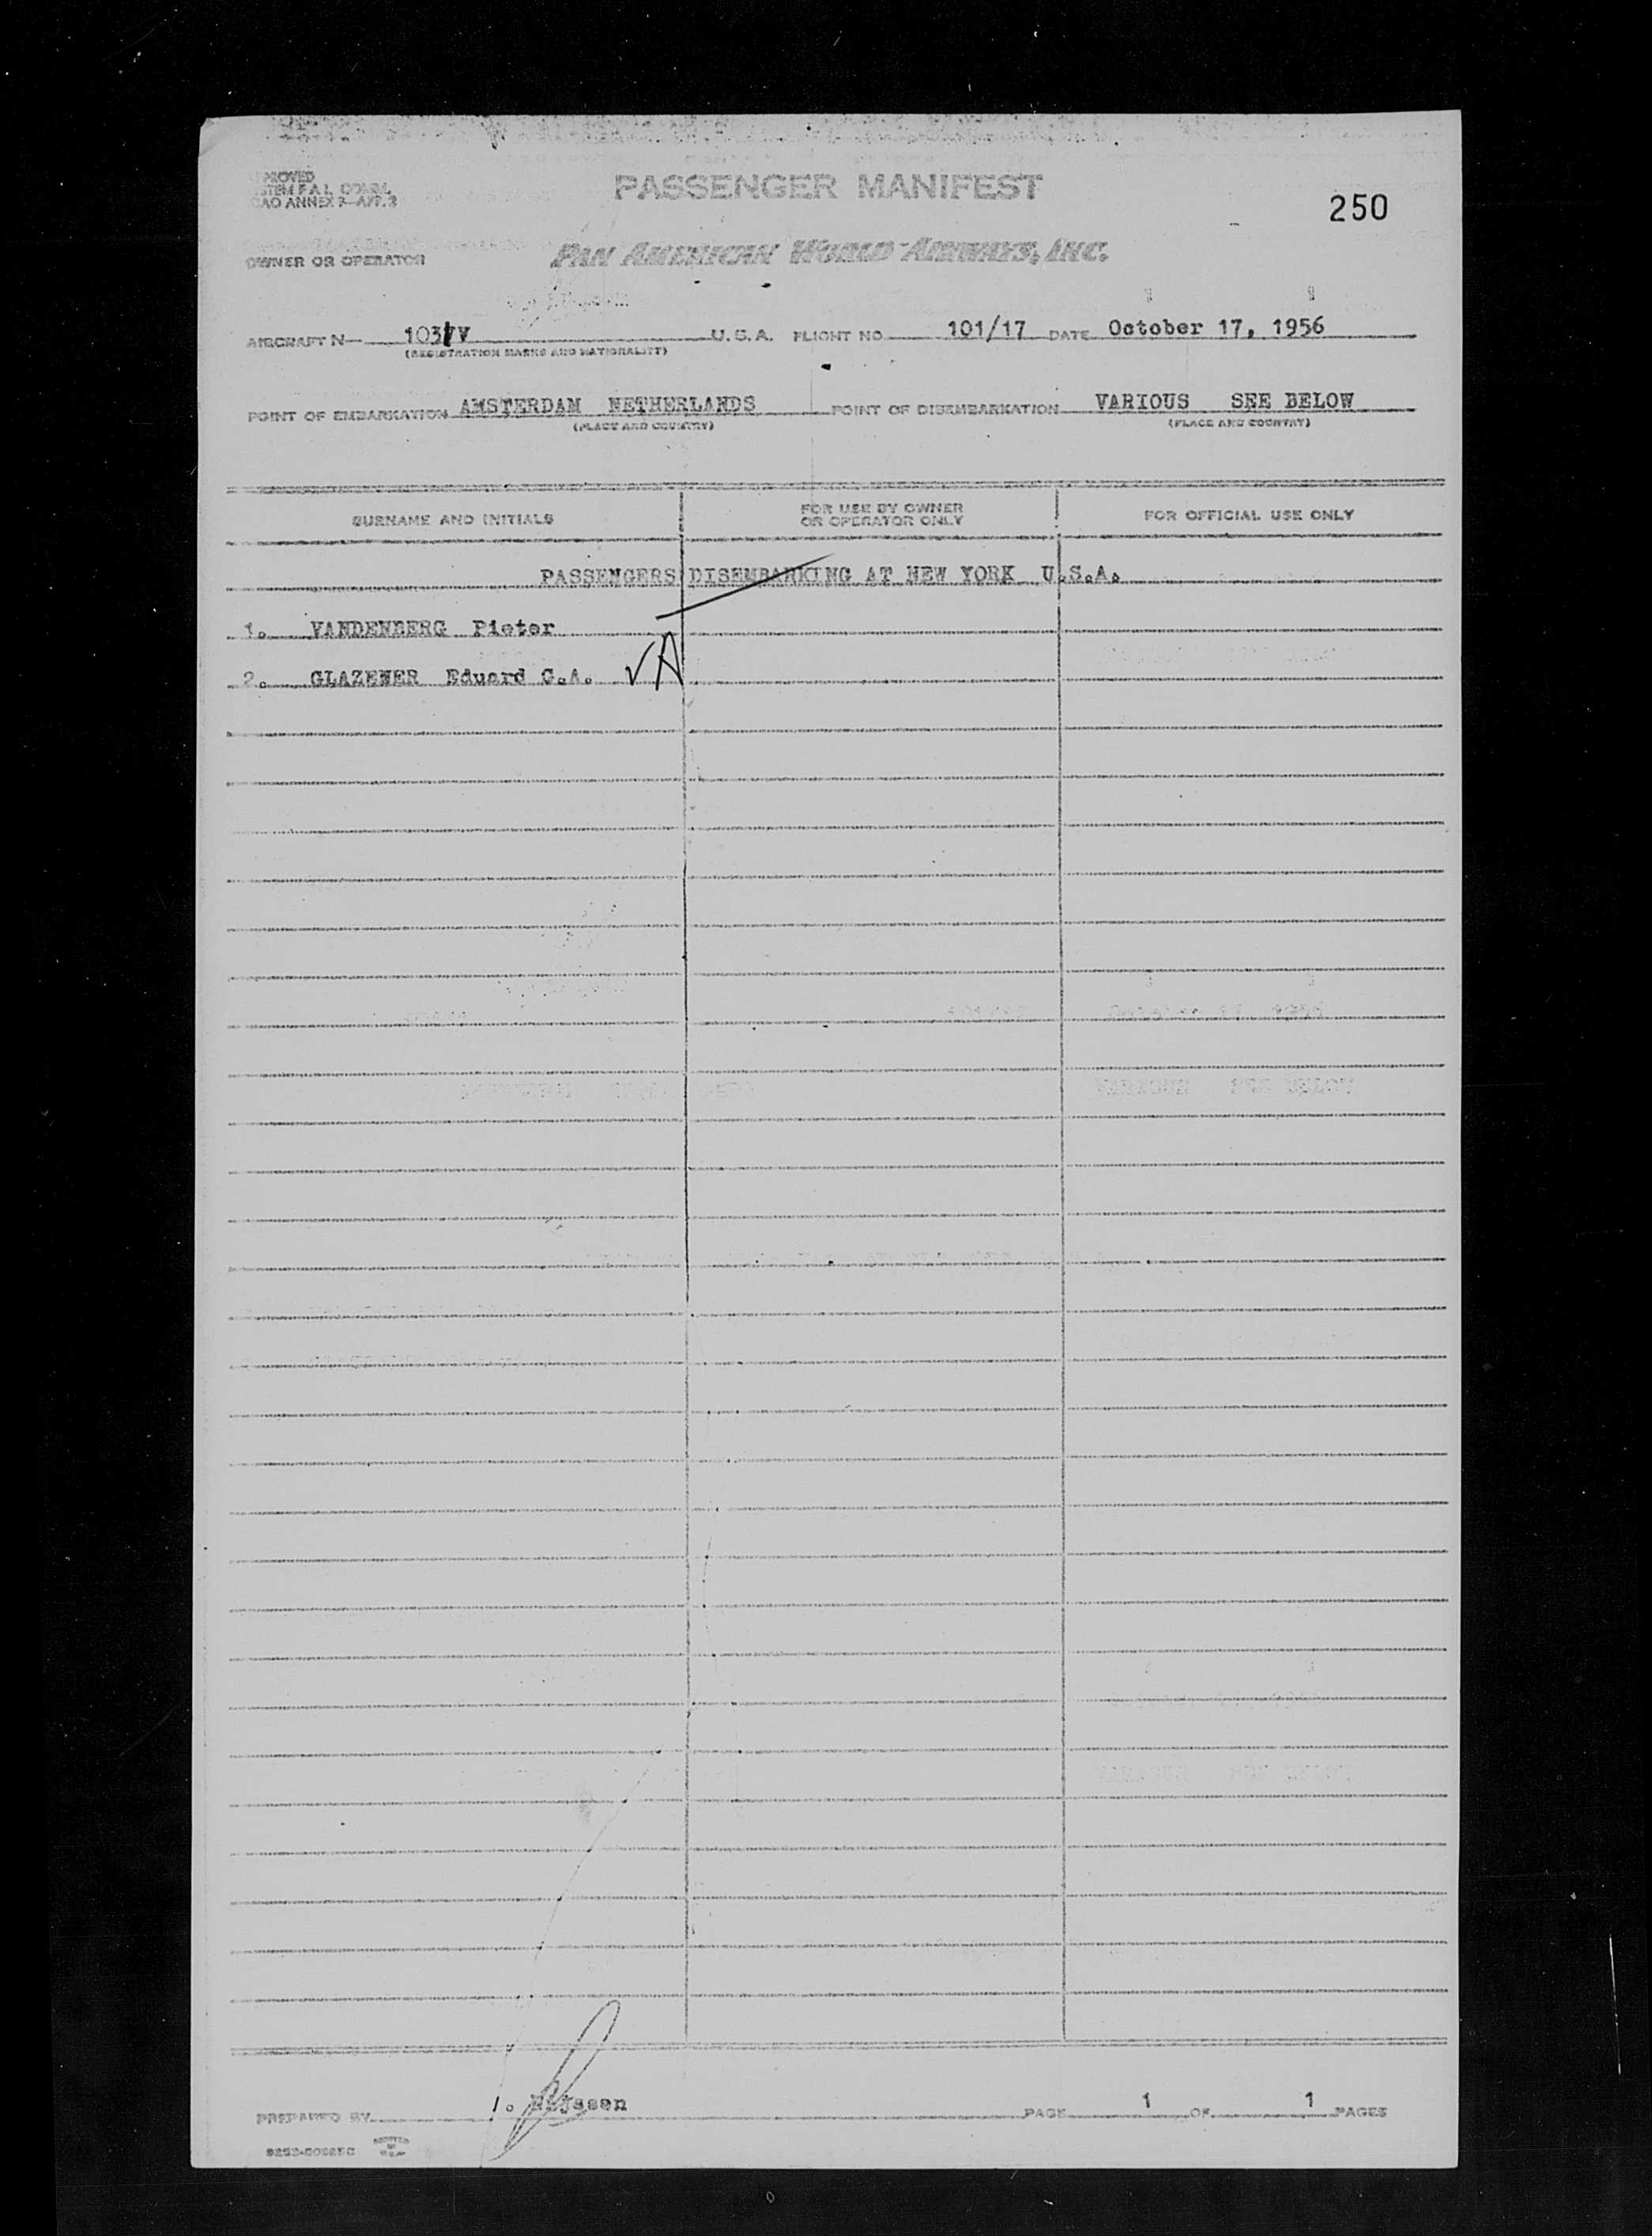 PASSENGER MANIFEST
250
OWNER OR OPERATOR
PAN AMERICAN WORLD AIRWAYS, INC.
AIRCRAFT N— U.S.A. FLIGHT NO. 101/17 DATE October 17, 1956
(REGISTRATION MARKS AND NATIONALITY)
POINT OF EMBARKATION AMSTERDAM NETHERLANDS POINT OF DISEMBARKATION VARIOUS SEE BELOW
(PLACE AND COUNTRY) (PLACE AND COUNTRY)
SURNAME AND INITIALS FOR USE BY OWNER OR OPERATOR ONLY FOR OFFICIAL USE ONLY
PASSENGERS DISEMBARKING AT NEW YORK U.S.A.
1. VANDENBERG Pieter
2. GLAZENER Eduard C.A. √A
PREPARED BY PAGE 1 OF 1 PAGES